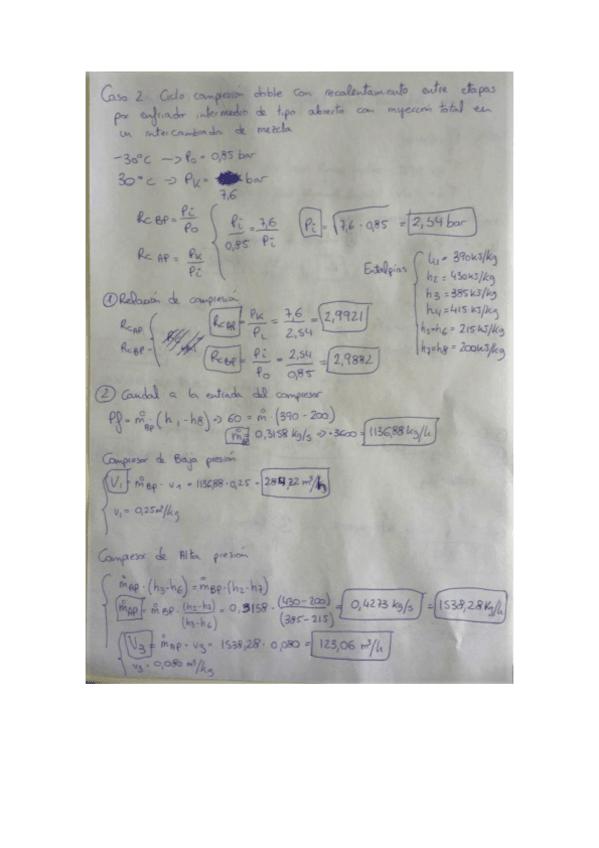 Caso 2. Ciclo compresión doble con recalentamiento entre etapas
por enfriador intermedio de tipo abierto con inyección total en
un intercambiador de mezcla
-30°C → P0 = 0,85 bar
30°C → PK = bar
7,6
Rc BP = Pi/P0
Rc AP = PK/Pi
Pi/0,85 = 7,6/Pi
Pi = √7,6 · 0,85 = 2,54 bar
Entalpías
h1 = 390 kJ/kg
h2 = 430 kJ/kg
h3 = 385 kJ/kg
h4 = 415 kJ/kg
h5=h6 = 215 kJ/kg
h7=h8 = 200 kJ/kg
① Relación de compresión
RcAP
RcBP
RcAP = PK/Pi = 7,6/2,54 = 2,9921
RcBP = Pi/P0 = 2,54/0,85 = 2,9882
② Caudal a la entrada del compresor
Pf = ṁBP · (h1 - h8) ⇒ 60 = ṁ · (390 - 200)
ṁ = 0,3158 kg/s ⇒ ·3600 = 1136,88 kg/h
Compresor de Baja presión
V1 = ṁBP · v1 = 1136,88 · 0,25 = 284,22 m³/h
v1 = 0,25 m³/kg
Compresor de Alta presión
ṁAP · (h3-h6) = ṁBP · (h2-h7)
ṁAP = ṁBP · (h2-h7)/(h3-h6) = 0,3158 · (430-200)/(385-215) = 0,4273 kg/s = 1538,28 kg/h
V3 = ṁAP · v3 = 1538,28 · 0,080 = 123,06 m³/h
v3 = 0,080 m³/kg